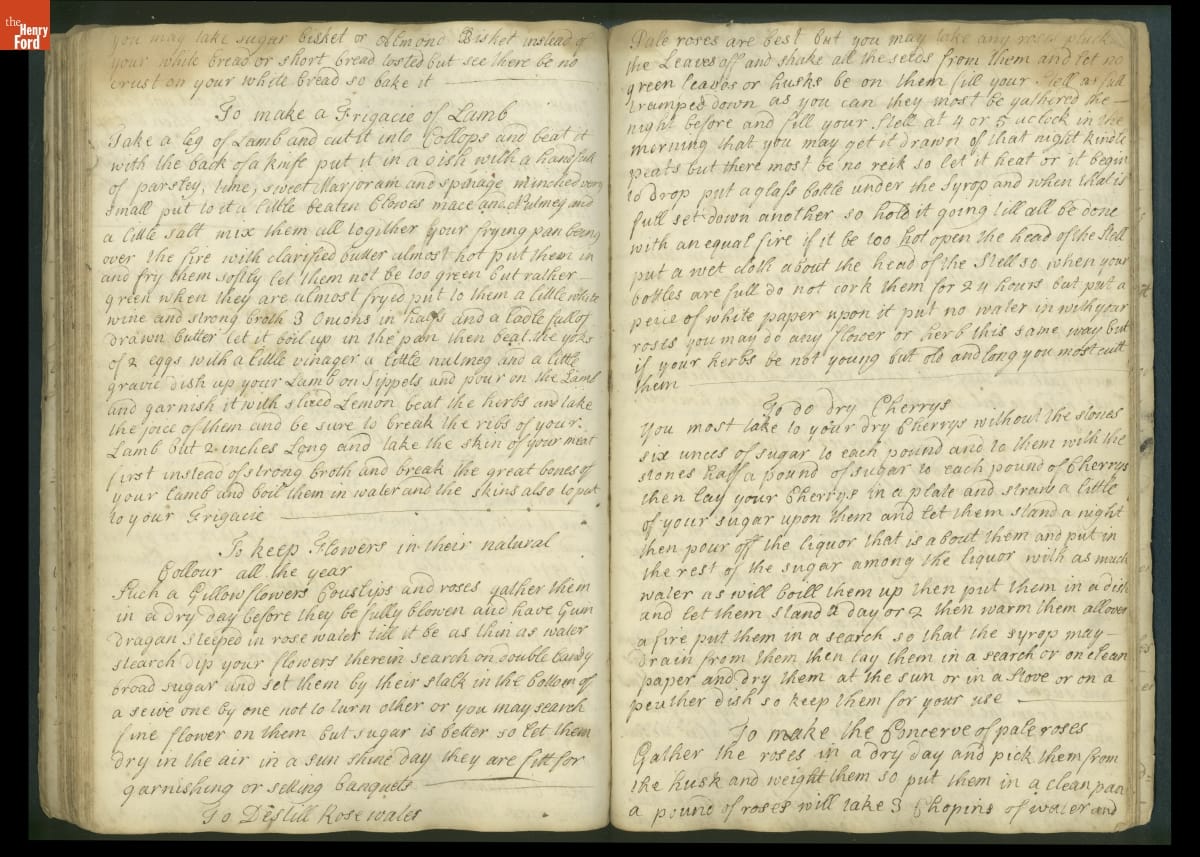 the
Henry
Ford
you may take sugar bisket or Almond Bisket instead of
your white bread or short bread tosted but see there be no
crust on your white bread so bake it
To make a Frigacie of Lamb
Take a leg of Lamb and cut it into Collops and beat it
with the back of a knife put it in a dish with a handfull
of parsley, time, sweet Marjoram and spinage minched very
small put to it a little beaten Cloves mace and Nutmeg and
a little salt mix them all togither your frying pan being
over the fire with clarified butter almost hot put them in
and fry them softly let them not be too green but rather
green when they are almost fryed put to them a little white
wine and strong broth 3 Onions in halfs and a ladle full of
drawn butter let it boil up in the pan then beat the yolks
of 2 eggs with a little vinager a little nutmeg and a little
gravie dish up your Lamb on Sippets and pour on the Lamb
and garnish it with sliced Lemon beat the herbs and take
the joice of them and be sure to break the ribs of your
Lamb but 2 inches Long and take the skin of your meat
first instead of strong broth and break the great bones of
your lamb and boil them in water and the skins also to put
to your Frigacie
To keep Flowers in their natural
Collour all the year
Such a Gillowflowers Couslips and roses gather them
in a dry day before they be fully blowen and have Gum
Dragan steeped in rose water till it be as thin as water
stearch dip your flowers therein search on double Candy
broad sugar and set them by their stalk in the bottom of
a seive one by one not to turn other or you may search
fine flower on them but sugar is better so let them
dry in the air in a sun shine day they are fitt for
garnishing or setting banquets
To Destill Rose water
Pale roses are best but you may take any roses pluck
the Leaves off and shake all the seeds from them and let no
green leaves or husks be on them fill your Stell as full
tramped down as you can they most be gathered the
night before and fill your Stell at 4 or 5 aclock in the
morning that you may get it drawn of that night kindle
peats but there most be no reik so let it heat or it begin
to drop put a glass bottle under the Syrop and when that is
full set down another so hold it going till all be done
with an equal fire if it be too hot open the head of the Stell
put a wet cloth about the head of the Stell so when your
bottles are full do not cork them for 24 hours but put a
peice of white paper upon it put no water in with your
roses you may do any flower or herb this same way but
if your herbs be not young but old and long you most cutt
them
To do dry Cherrys
You most take to your dry Cherrys without the stones
six unces of sugar to each pound and to them with the
stones half a pound of sugar to each pound of Cherrys
then lay your Cherrys in a plate and straw a little
of your sugar upon them and let them stand a night
then pour off the liquor that is about them and put in
the rest of the sugar among the liquor with as much
water as will boill them up then put them in a dish
and let them stand a day or 2 then warm them all over
a fire put them in a search so that the syrop may
drain from them then lay them in a search or on clean
paper and dry them at the sun or in a stove or on a
peuther dish so keep them for your use
To make the Concerve of pale roses
Gather the roses in a dry day and pick them from
the husk and weight them so put them in a clean pan
a pound of roses will take 3 Chopins of water and